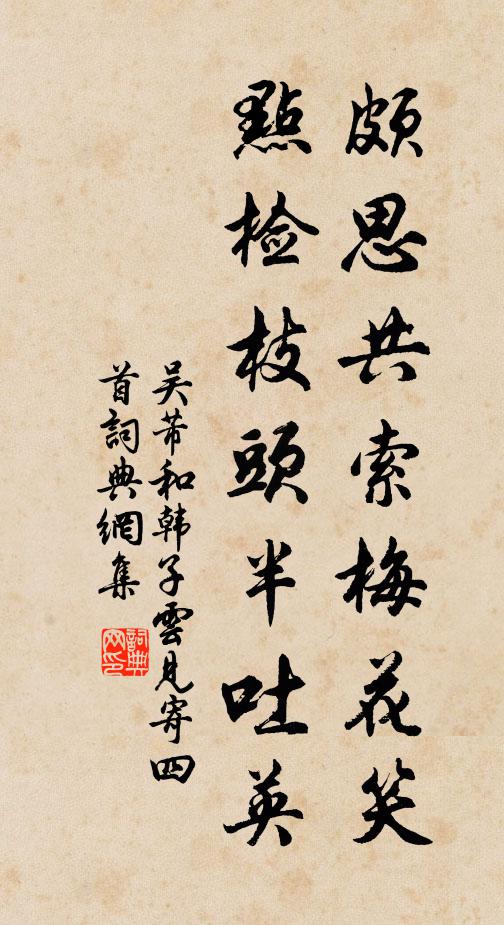 頗思共索梅花笑
點檢枝頭半吐英
吴芾和韩子雲見寄四
首詞典網集
詞典
网印